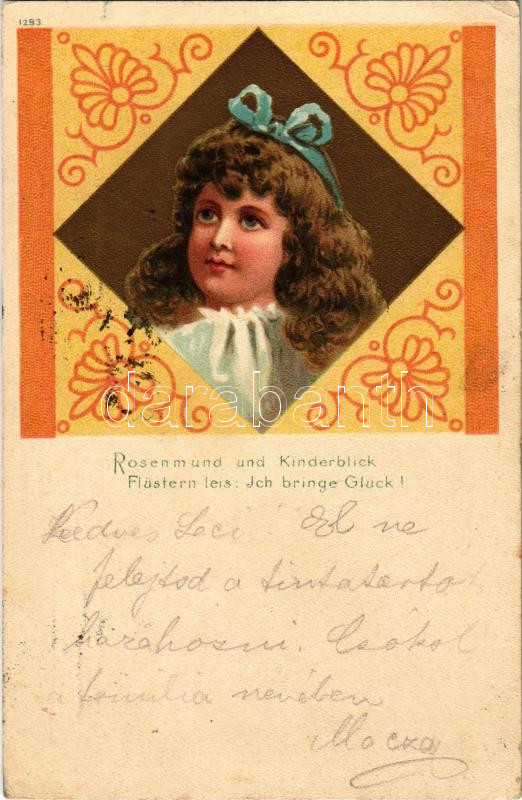 1293
darabanth
Rosenmund und Kinderblick
Flüstern leis: Jch bringe Glück!
Kedves Laci! El ne
felejtsd a tintatartót
hazahozni. Csókol
a família nevében
Macza